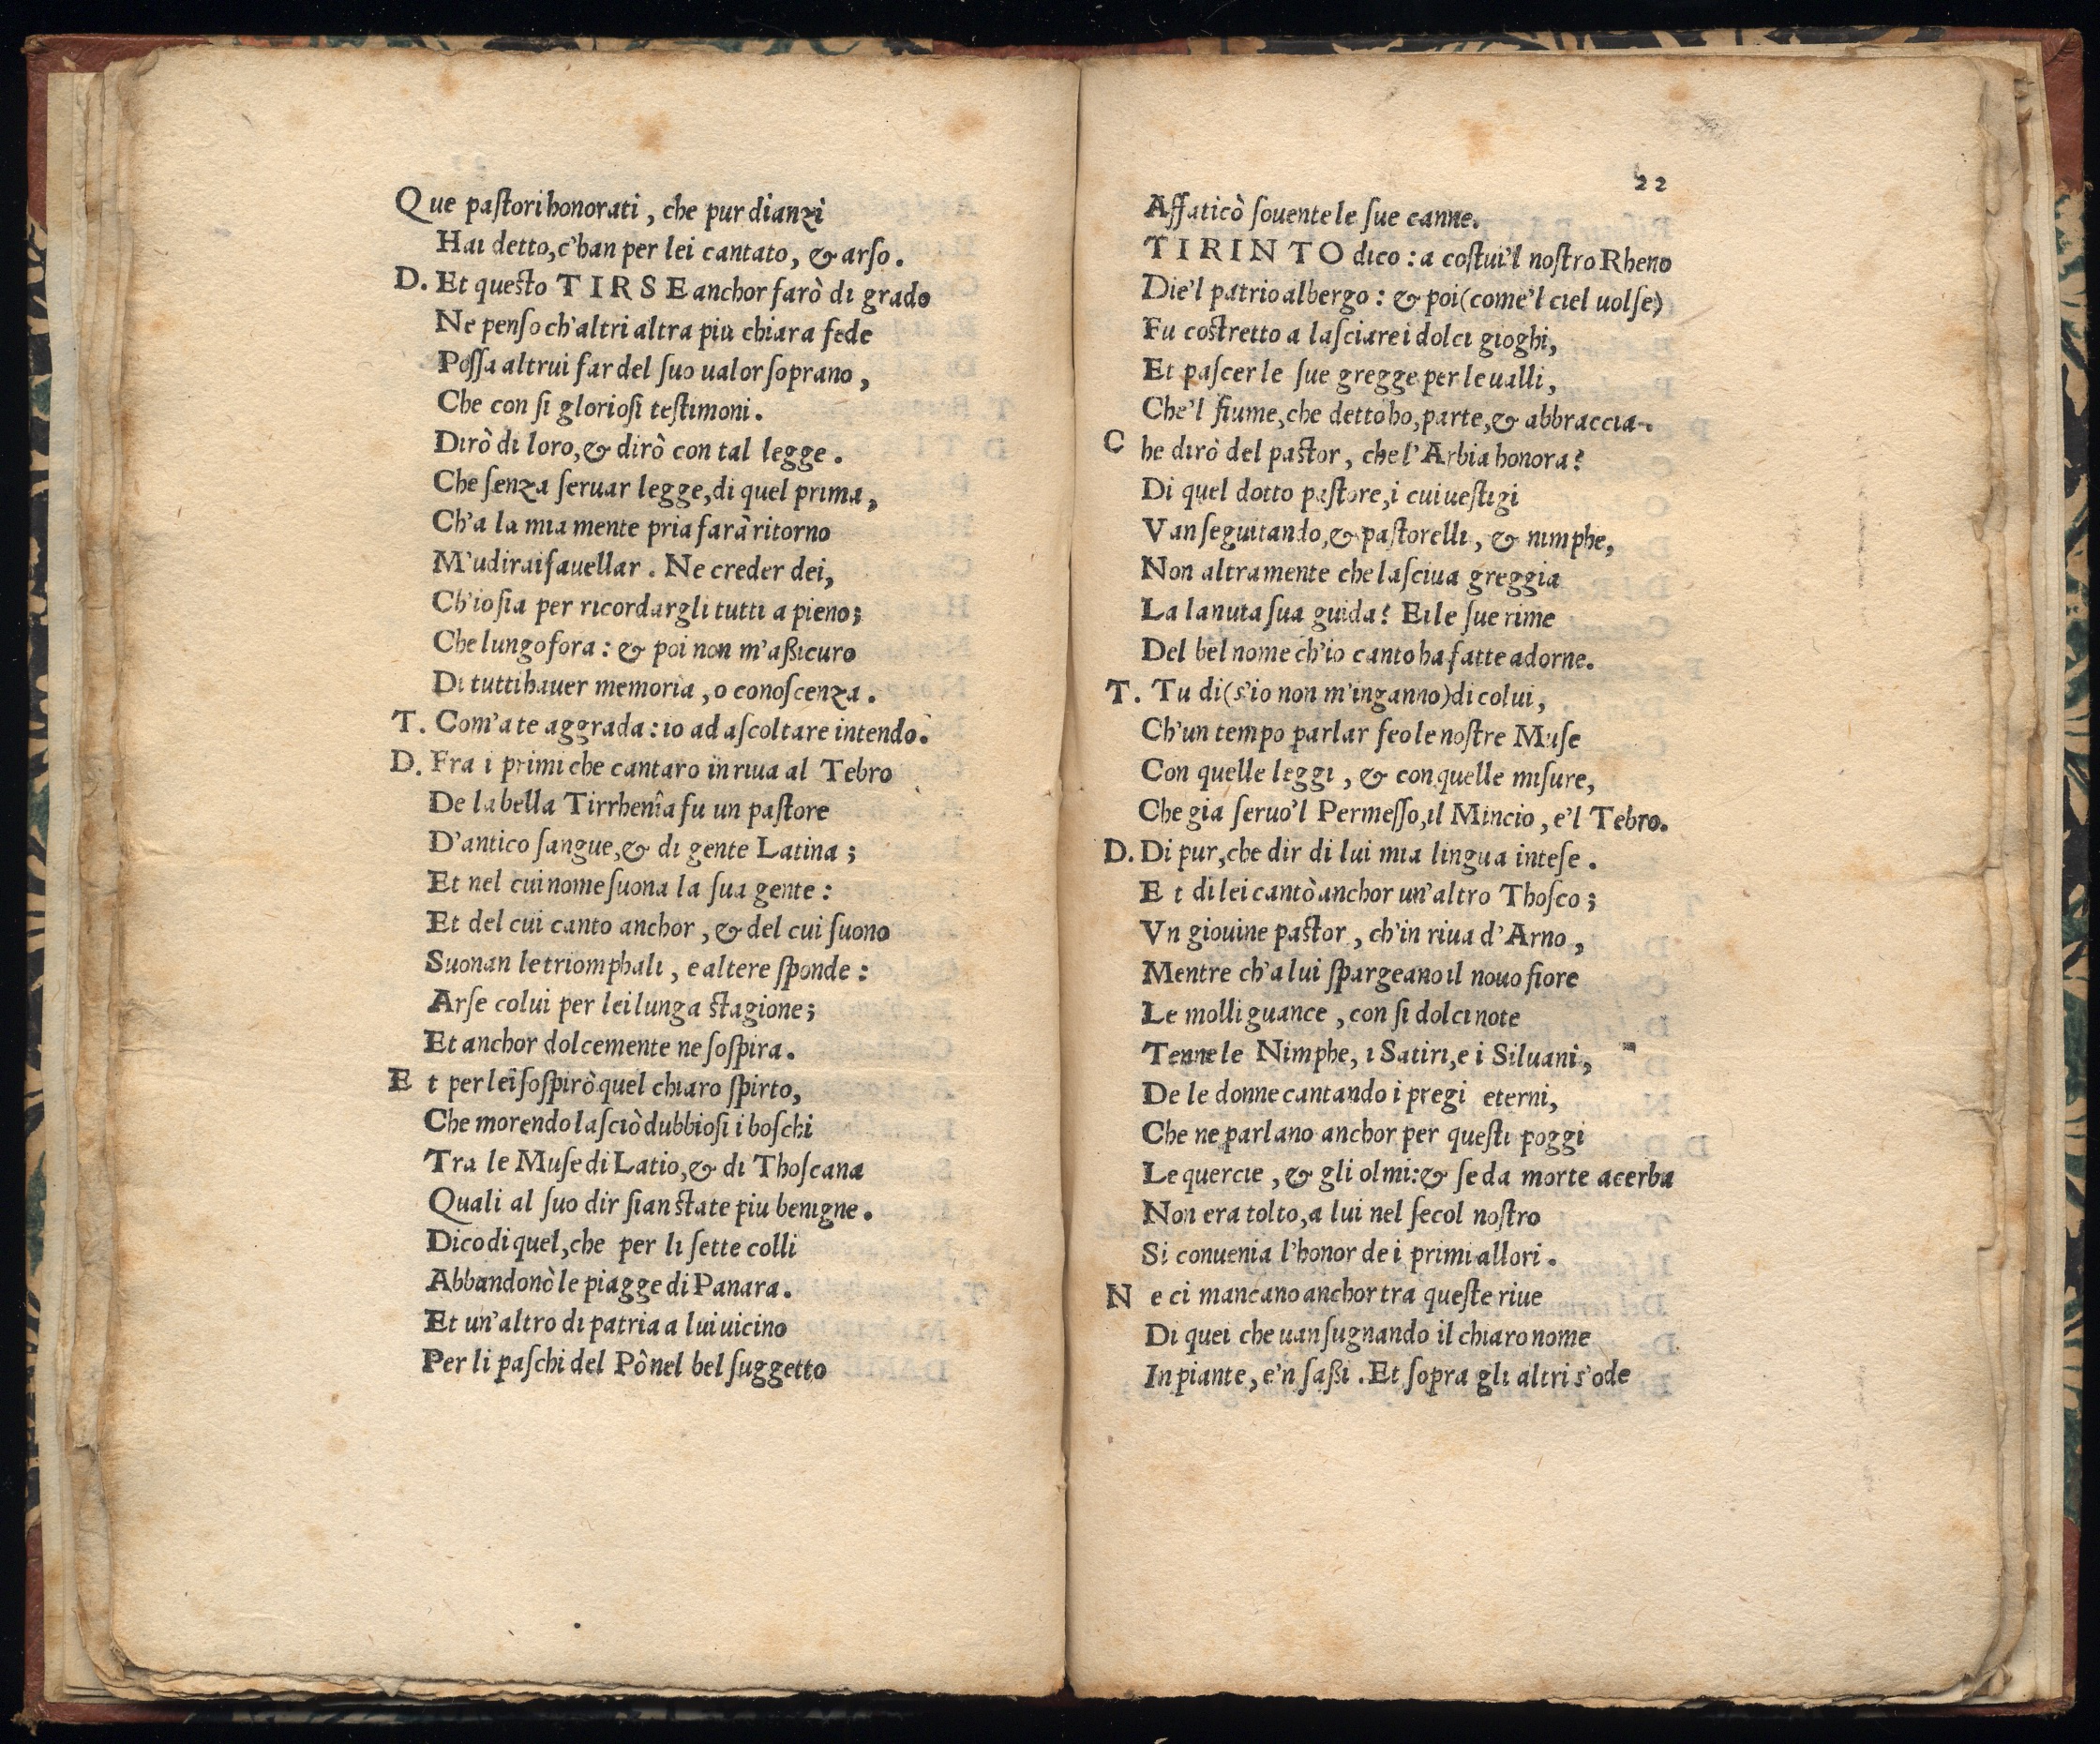 Que pastori honorati, che pur dianzi
Hai detto, c'han per lei cantato, & arso.
D. Et questo TIRSE anchor farò di grado
Ne penso ch'altri altra piu chiara fede
Possa altrui far del suo ualor soprano,
Che con si gloriosi testimoni.
Dirò di loro, & dirò con tal legge.
Che senza seruar legge, di quel prima,
Ch'a la mia mente pria farà ritorno
M'udirai fauellar. Ne creder dei,
Ch'io sia per ricordargli tutti a pieno;
Che lungo fora: & poi non m'assicuro
Di tutti hauer memoria, o conoscenza.
T. Com'a te aggrada: io ad ascoltare intendo.
D. Fra i primi che cantaro in riua al Tebro
De la bella Tirrhenia fu un pastore
D'antico sangue, & di gente Latina;
Et nel cui nome suona la sua gente:
Et del cui canto anchor, & del cui suono
Suonan le triomphali, e altere sponde:
Arse colui per lei lunga stagione;
Et anchor dolcemente ne sospira.
Et per lei sospirò quel chiaro spirto,
Che morendo lasciò dubbiosi i boschi
Tra le Muse di Latio, & di Thoscana
Quali al suo dir sian state piu benigne.
Dico di quel, che per li sette colli
Abbandonò le piagge di Panara.
Et un'altro di patria a lui uicino
Per li paschi del Pò nel bel suggetto
22
Affaticò souente le sue canne.
TIRINTO dico: a costui'l nostro Rheno
Die'l patrio albergo: & poi (come'l ciel uolse)
Fu costretto a lasciare i dolci gioghi,
Et pascer le sue gregge per le ualli,
Che'l fiume, che detto ho, parte, & abbraccia.
Che dirò del pastor, che l'Arbia honora?
Di quel dotto pastore, i cui uestigi
Van seguitando, & pastorelli, & nimphe,
Non altramente che lasciua greggia
La lanuta sua guida? Ei le sue rime
Del bel nome ch'io canto ha fatte adorne.
T. Tu di (s'io non m'inganno) di colui,
Ch'un tempo parlar feo le nostre Muse
Con quelle leggi, & con quelle misure,
Che gia seruo'l Permesso, il Mincio, e'l Tebro.
D. Di pur, che dir di lui mia lingua intese.
Et di lei cantò anchor un'altro Thosco;
Vn giouine pastor, ch'in riua d'Arno,
Mentre ch'a lui spargeano il nouo fiore
Le molli guance, con si dolci note
Tenne le Nimphe, i Satiri, e i Siluani,
De le donne cantando i pregi eterni,
Che ne parlano anchor per questi poggi
Le quercie, & gli olmi: & se da morte acerba
Non era tolto, a lui nel secol nostro
Si conuenia l'honor de i primi allori.
Ne ci mancano anchor tra queste riue
Di quei che uan sugnando il chiaro nome
In piante, e'n sassi. Et sopra gli altri s'ode